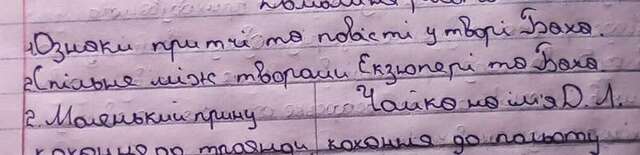 1. Ознаки притчі та повісті у творі Баха.
2. Спільне між творами Екзюпері та Баха
2. Маленький принц Чайка на ім'я Д. Л.
кохання до троянди кохання до польоту